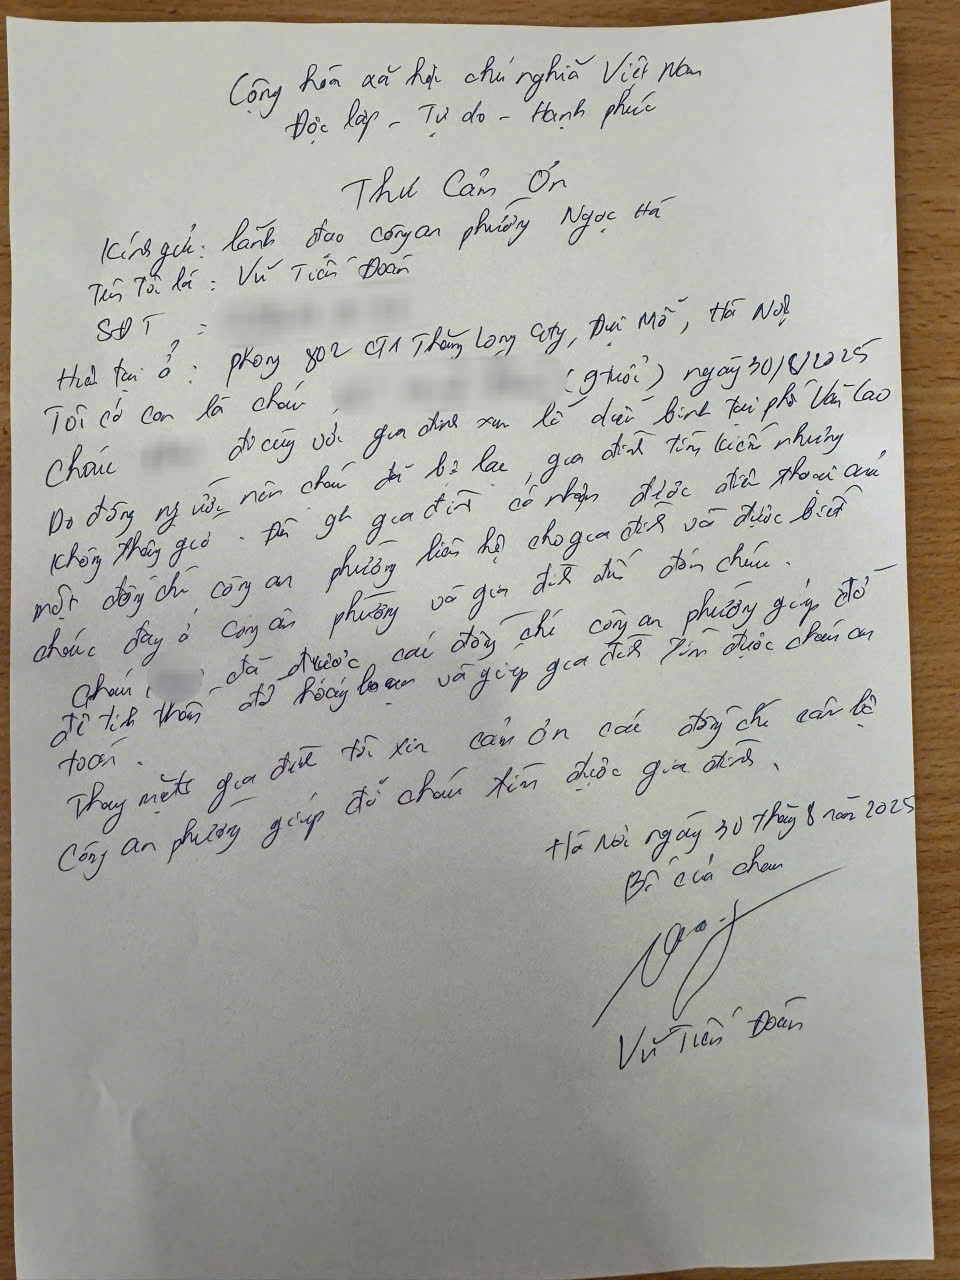 Cộng hòa xã hội chủ nghĩa Việt Nam
Độc lập - Tự do - Hạnh phúc
Thư Cảm Ơn
Kính gửi: lãnh đạo công an phường Ngọc Hà
Tên Tôi là : Vũ Tiến Đoàn
SĐT :
Hiện tại ở : phòng 802 CT1 Thăng Long City, Đại Mỗ, Hà Nội
Tôi có con là cháu (9 tuổi) ngày 30/8/2025
Cháu đi cùng với gia đình xem lễ diễu binh tại phố Văn Cao
Do đông người nên cháu đã bị lạc, gia đình tìm kiếm nhưng
không thấy. Đến gia đình có nhận được điện thoại của
một đồng chí công an phường liên hệ cho gia đình và được biết
cháu đang ở công an phường và gia đình đến đón cháu.
Cháu đã được các đồng chí công an phường giúp đỡ
để tinh thần đỡ hoảng loạn và giúp gia đình tìm được cháu an
toàn.
Thay mặt gia đình tôi xin cảm ơn các đồng chí cán bộ
Công an phường giúp đỡ cháu tìm được gia đình.
Hà Nội ngày 30 tháng 8 năm 2025
Bố của cháu
Vũ Tiến Đoàn